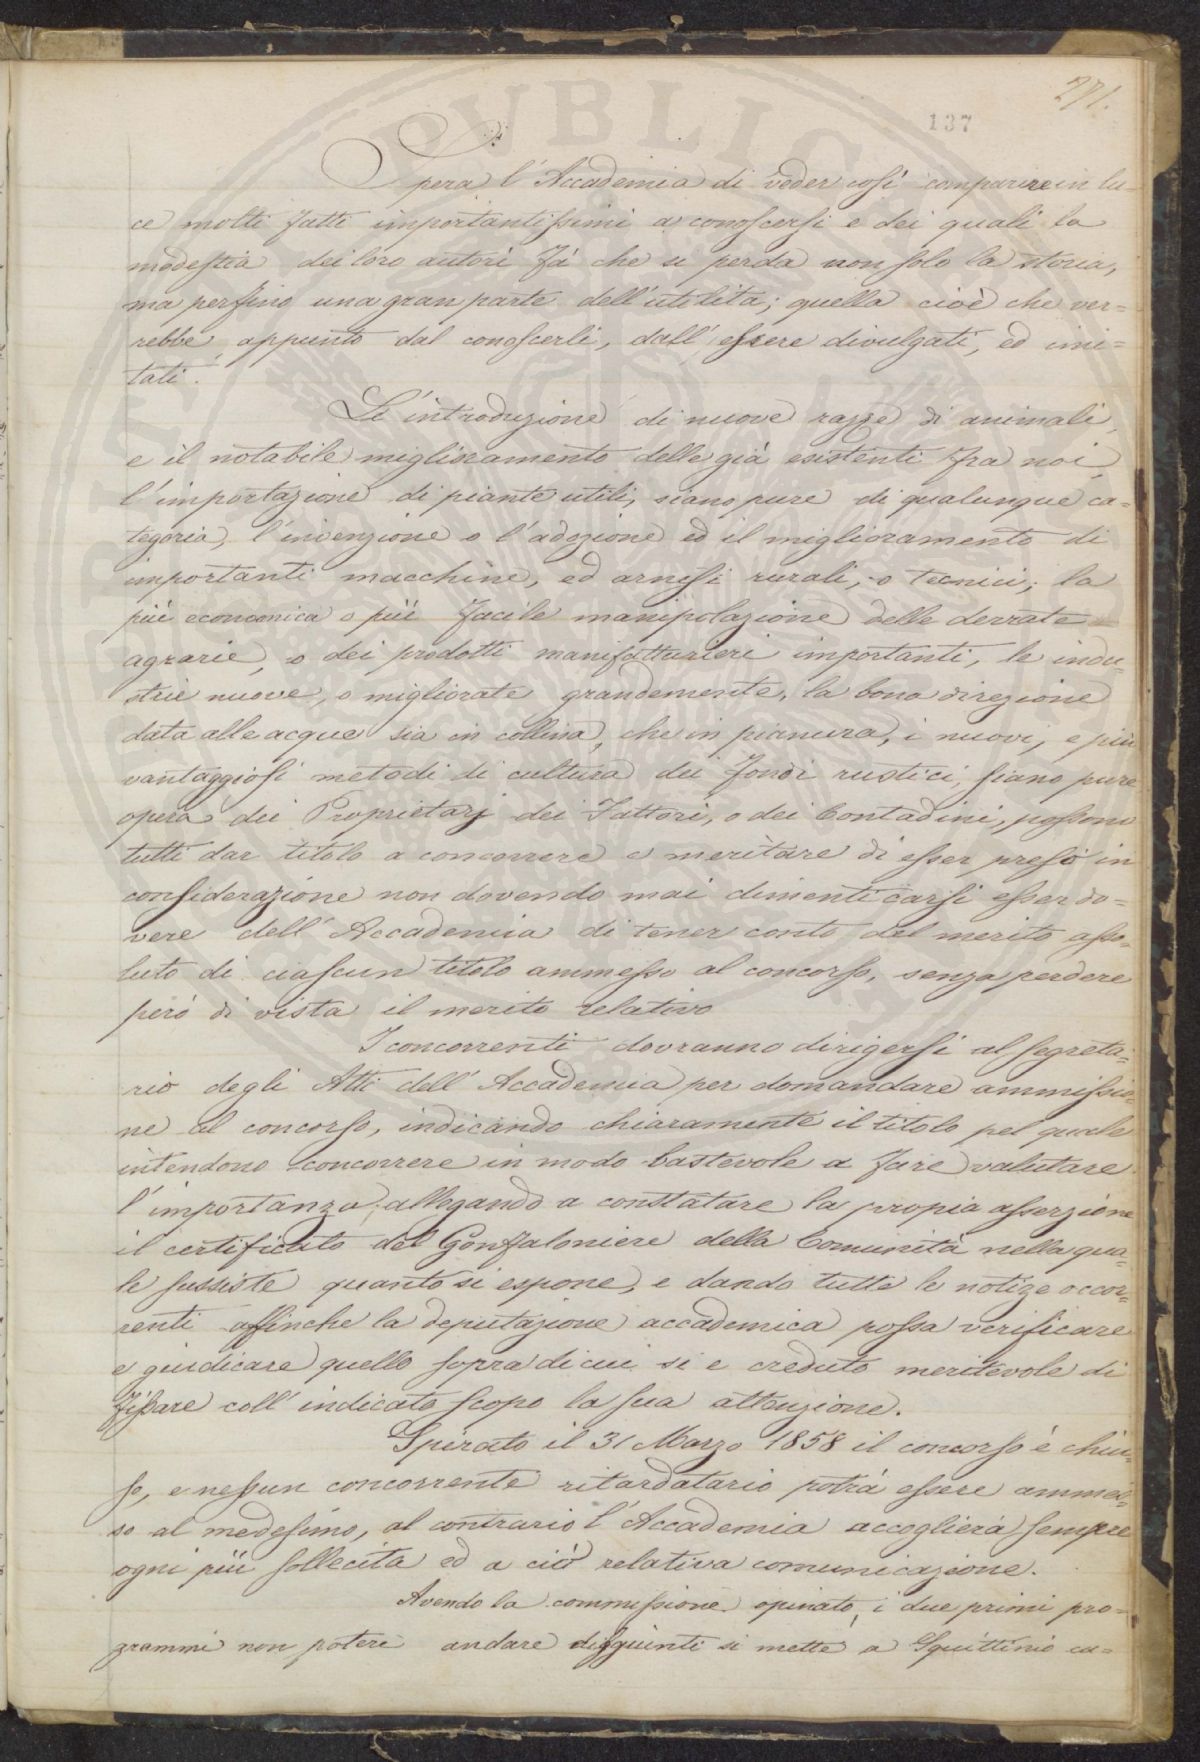 271.
137
Spera l'Accademia di veder così comparire in lu-
ce molti fatti importantissimi a conoscersi e dei quali la
modestia dei loro autori fà che si perda non solo la storia,
ma perfino una gran parte dell'utilità; quella cioè che ver=
rebbe appunto dal conoscerli, dall'essere divulgati, ed imi=
tati.
L'introduzione di nuove razze di animali,
e il notabile miglioramento delle già esistenti fra noi
l'importazione di piante utili, siano pure di qualunque ca=
tegoria, l'invenzione o l'adozione ed il miglioramento di
importanti macchine, ed arnesi rurali, o tecnici; la
più economica o più facile manipolazione delle derrate
agrarie, o dei prodotti manifatturieri importanti, le indu=
strie nuove, o migliorate grandemente, la bona direzione
data alle acque sia in collina, che in pianura, i nuovi, e più
vantaggiosi metodi di cultura dei fondi rustici, siano pure
opera dei Proprietarj dei Fattori, o dei Contadini, possono
tutti dar titolo a concorrere e meritare di esser presi in
considerazione non dovendo mai dimenticarsi esser do=
vere dell'Accademia di tener conto del merito asso=
luto di ciascun titolo ammesso al concorso, senza perdere
però di vista il merito relativo
I concorrenti dovranno dirigersi al segreta=
rio degli Atti dell'Accademia per domandare ammissio=
ne al concorso, indicando chiaramente il titolo pel quale
intendono concorrere in modo bastevole a fare valutare
l'importanza; allegando a constatare la propia asserzione
il certificato del Gonfaloniere della Comunità nella qua=
le sussiste quanto si espone, e dando tutte le notize occor=
renti affinche la deputazione accademica possa verificare
e giudicare quello sopra di cui si e creduto meritevole di
fissare coll'indicato scopo la sua attenzione.
Spirato il 31 Marzo 1858 il concorso è chiu=
so, e nessun concorrente ritardatario potrà essere ammes=
so al medesimo, al contrario l'Accademia accoglierà sempre
ogni più sollecita ed a ciò relativa comunicazione.
Avendo la commissione opinato, i due primi pro=
grammi non potere andare disgiunti si mette a Squittinio ca=